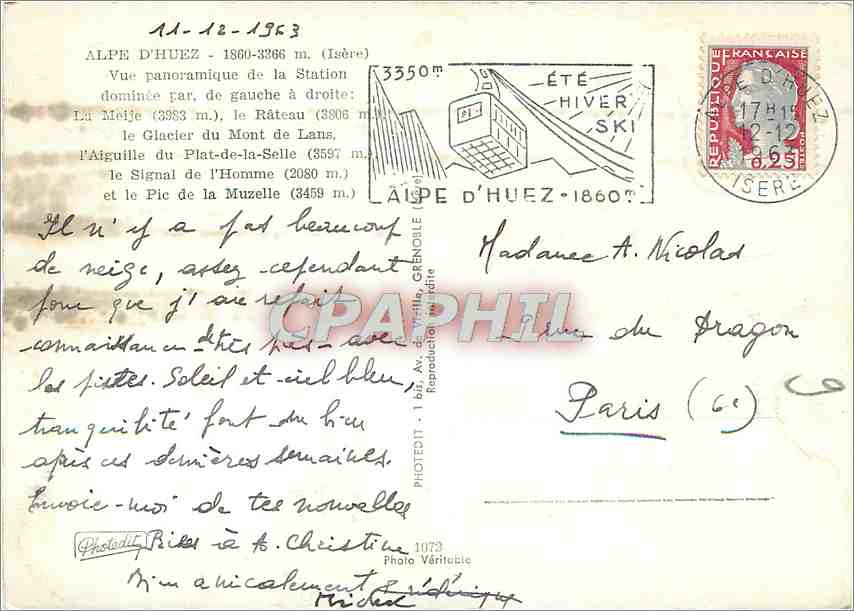 11-12-1963
ALPE D'HUEZ - 1860-3366 m. (Isère)
Vue panoramique de la Station
dominée par, de gauche à droite:
La Meije (3983 m.), le Râteau (3806 m
le Glacier du Mont de Lans,
l'Aiguille du Plat-de-la-Selle (3597 m.)
le Signal de l'Homme (2080 m.)
et le Pic de la Muzelle (3459 m.)
3350m
ÉTÉ
HIVER
SKI
ALPE D'HUEZ - 1860m
REPUBLIQUE FRANÇAISE
POSTES
0,25
ALPE D'HUEZ
17H15
12-12
1963
ISERE
Il n'y a pas beaucoup
de neige, assez cependant
pour que j'aie refait
connaissance de très près avec
les pistes. Soleil et ciel bleu,
tranquilité font du bien
après ces dernières semaines.
Envoie-moi de tes nouvelles
Bises à A. Christine
Bien amicalement Frédérique
Michel
Photedit
1072
Photo Véritable
PHOTEDIT - 1 bis, Av. de Vizille, GRENOBLE (Isère)
Reproduction interdite
CPAPHIL
Madame A. Nicolas
rue du Dragon
Paris (6e)